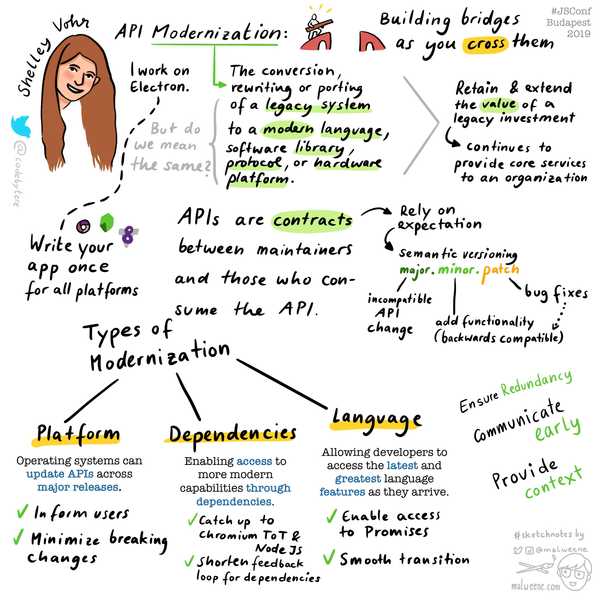 Shelley Vohr
@codebytere
API Modernization:
Building bridges
as you cross them
#JSConf
Budapest
2019
I work on
Electron.
The conversion,
rewriting or porting
of a legacy system
to a modern language,
software library,
protocol, or hardware
platform.
But do
we mean
the same?
Retain & extend
the value of a
legacy investment
Continues to
provide core services
to an organization
Write your
app once
for all platforms
APIs are contracts
between maintainers
and those who con-
sume the API.
Rely on
expectation
semantic versioning
major. minor. patch
incompatible
API
change
add functionality
(backwards compatible)
bug fixes
Types of
Modernization
Platform
Operating systems can
update APIs across
major releases.
✓ Inform users
✓ Minimize breaking
changes
Dependencies
Enabling access to
more modern
capabilities through
dependencies.
✓ Catch up to
chromium ToT &
Node JS
✓ Shorten feedback
loop for dependencies
Language
Allowing developers to
access the latest and
greatest language
features as they arrive.
✓ Enable access
to Promises
✓ Smooth transition
Ensure Redundancy
Communicate
early
Provide
context
#sketchnotes by
@malweene
malweene.com